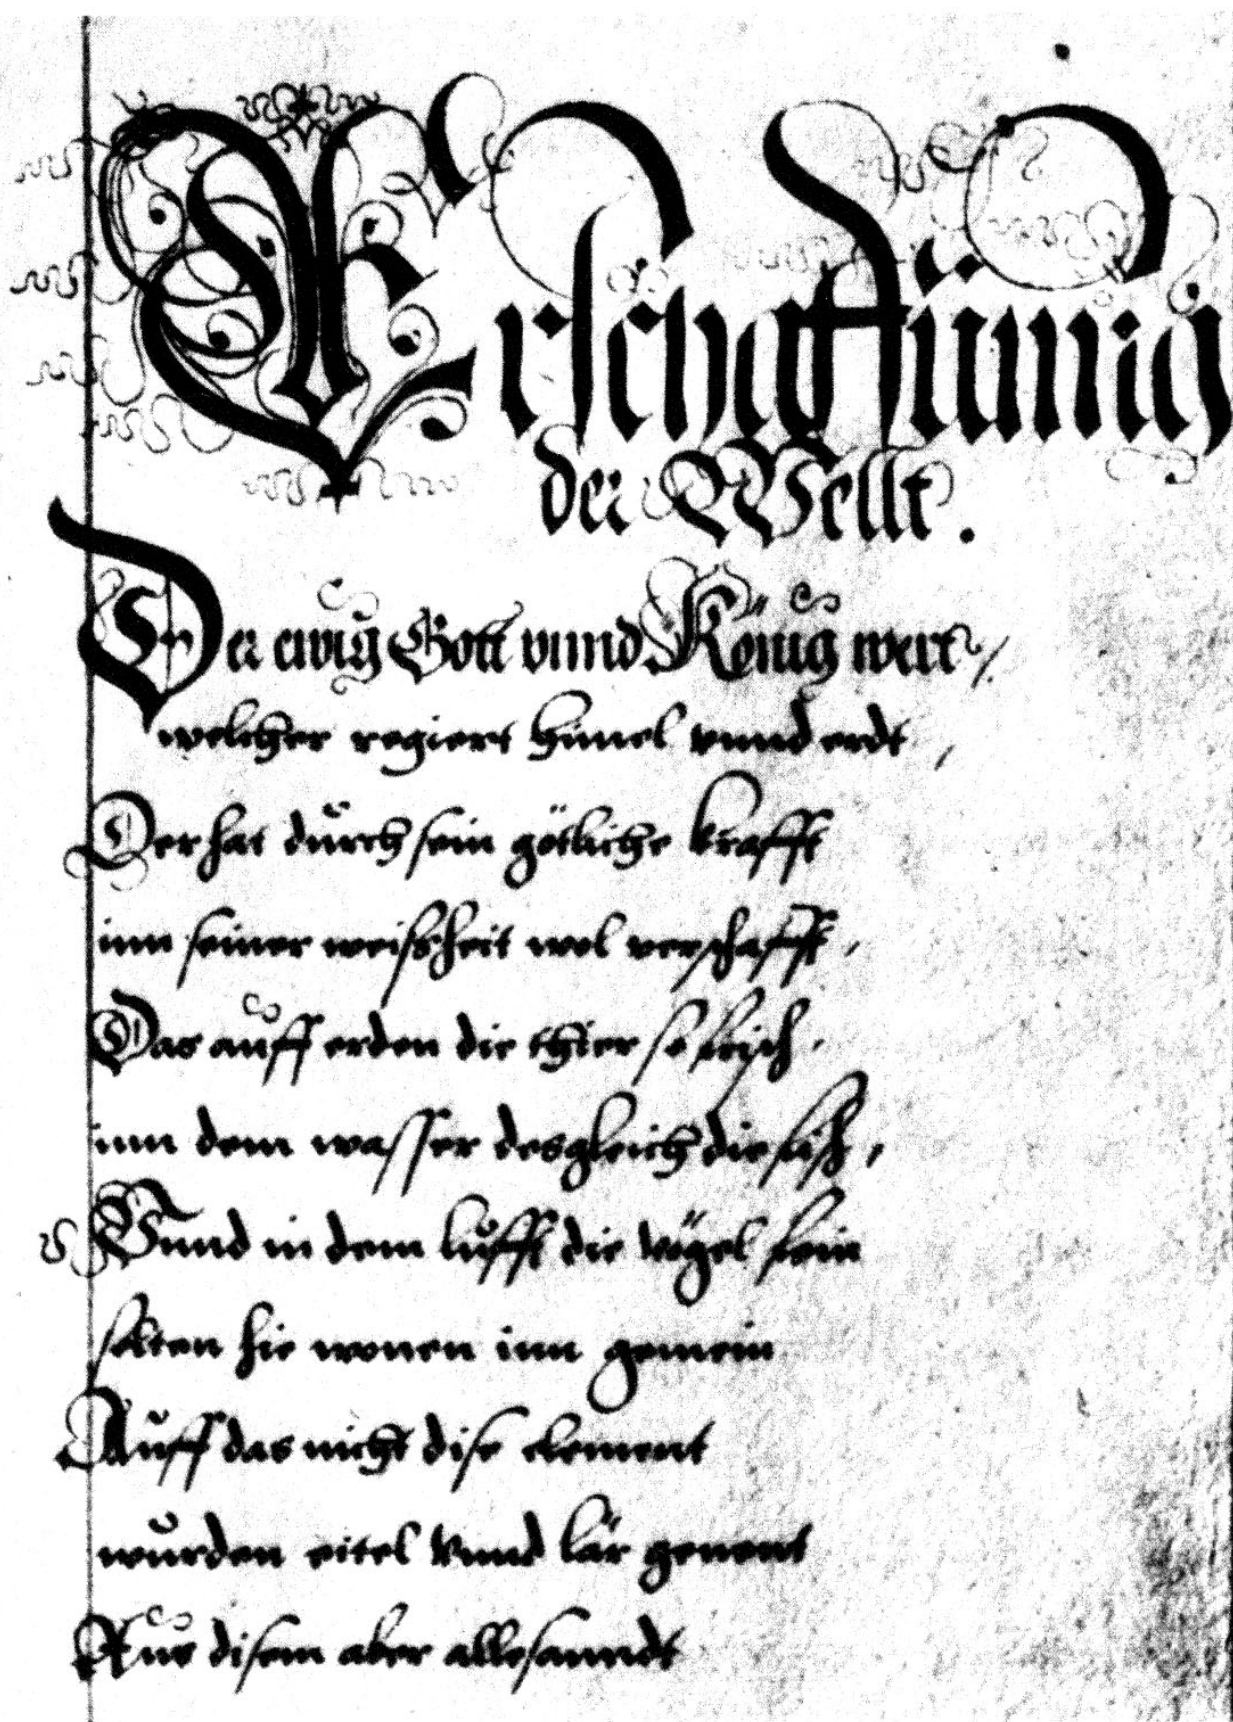 Erschaffünng
der Wellt.
Der ewig Gott vnnd König wert /.
welcher regiert himel vnnd erdt ,
Der hat durch sein götliche krafft
inn seiner weissheit wol verschafft ,
Das auff erden die thier so frisch .
inn dem wasser desgleich die fisch ,
Vnnd in dem lufft die vögel fein
solten hie wonen inn gemein
Auff das nicht dise element
wurden eitel vnnd lär genent
Aus disem aber allesanndt